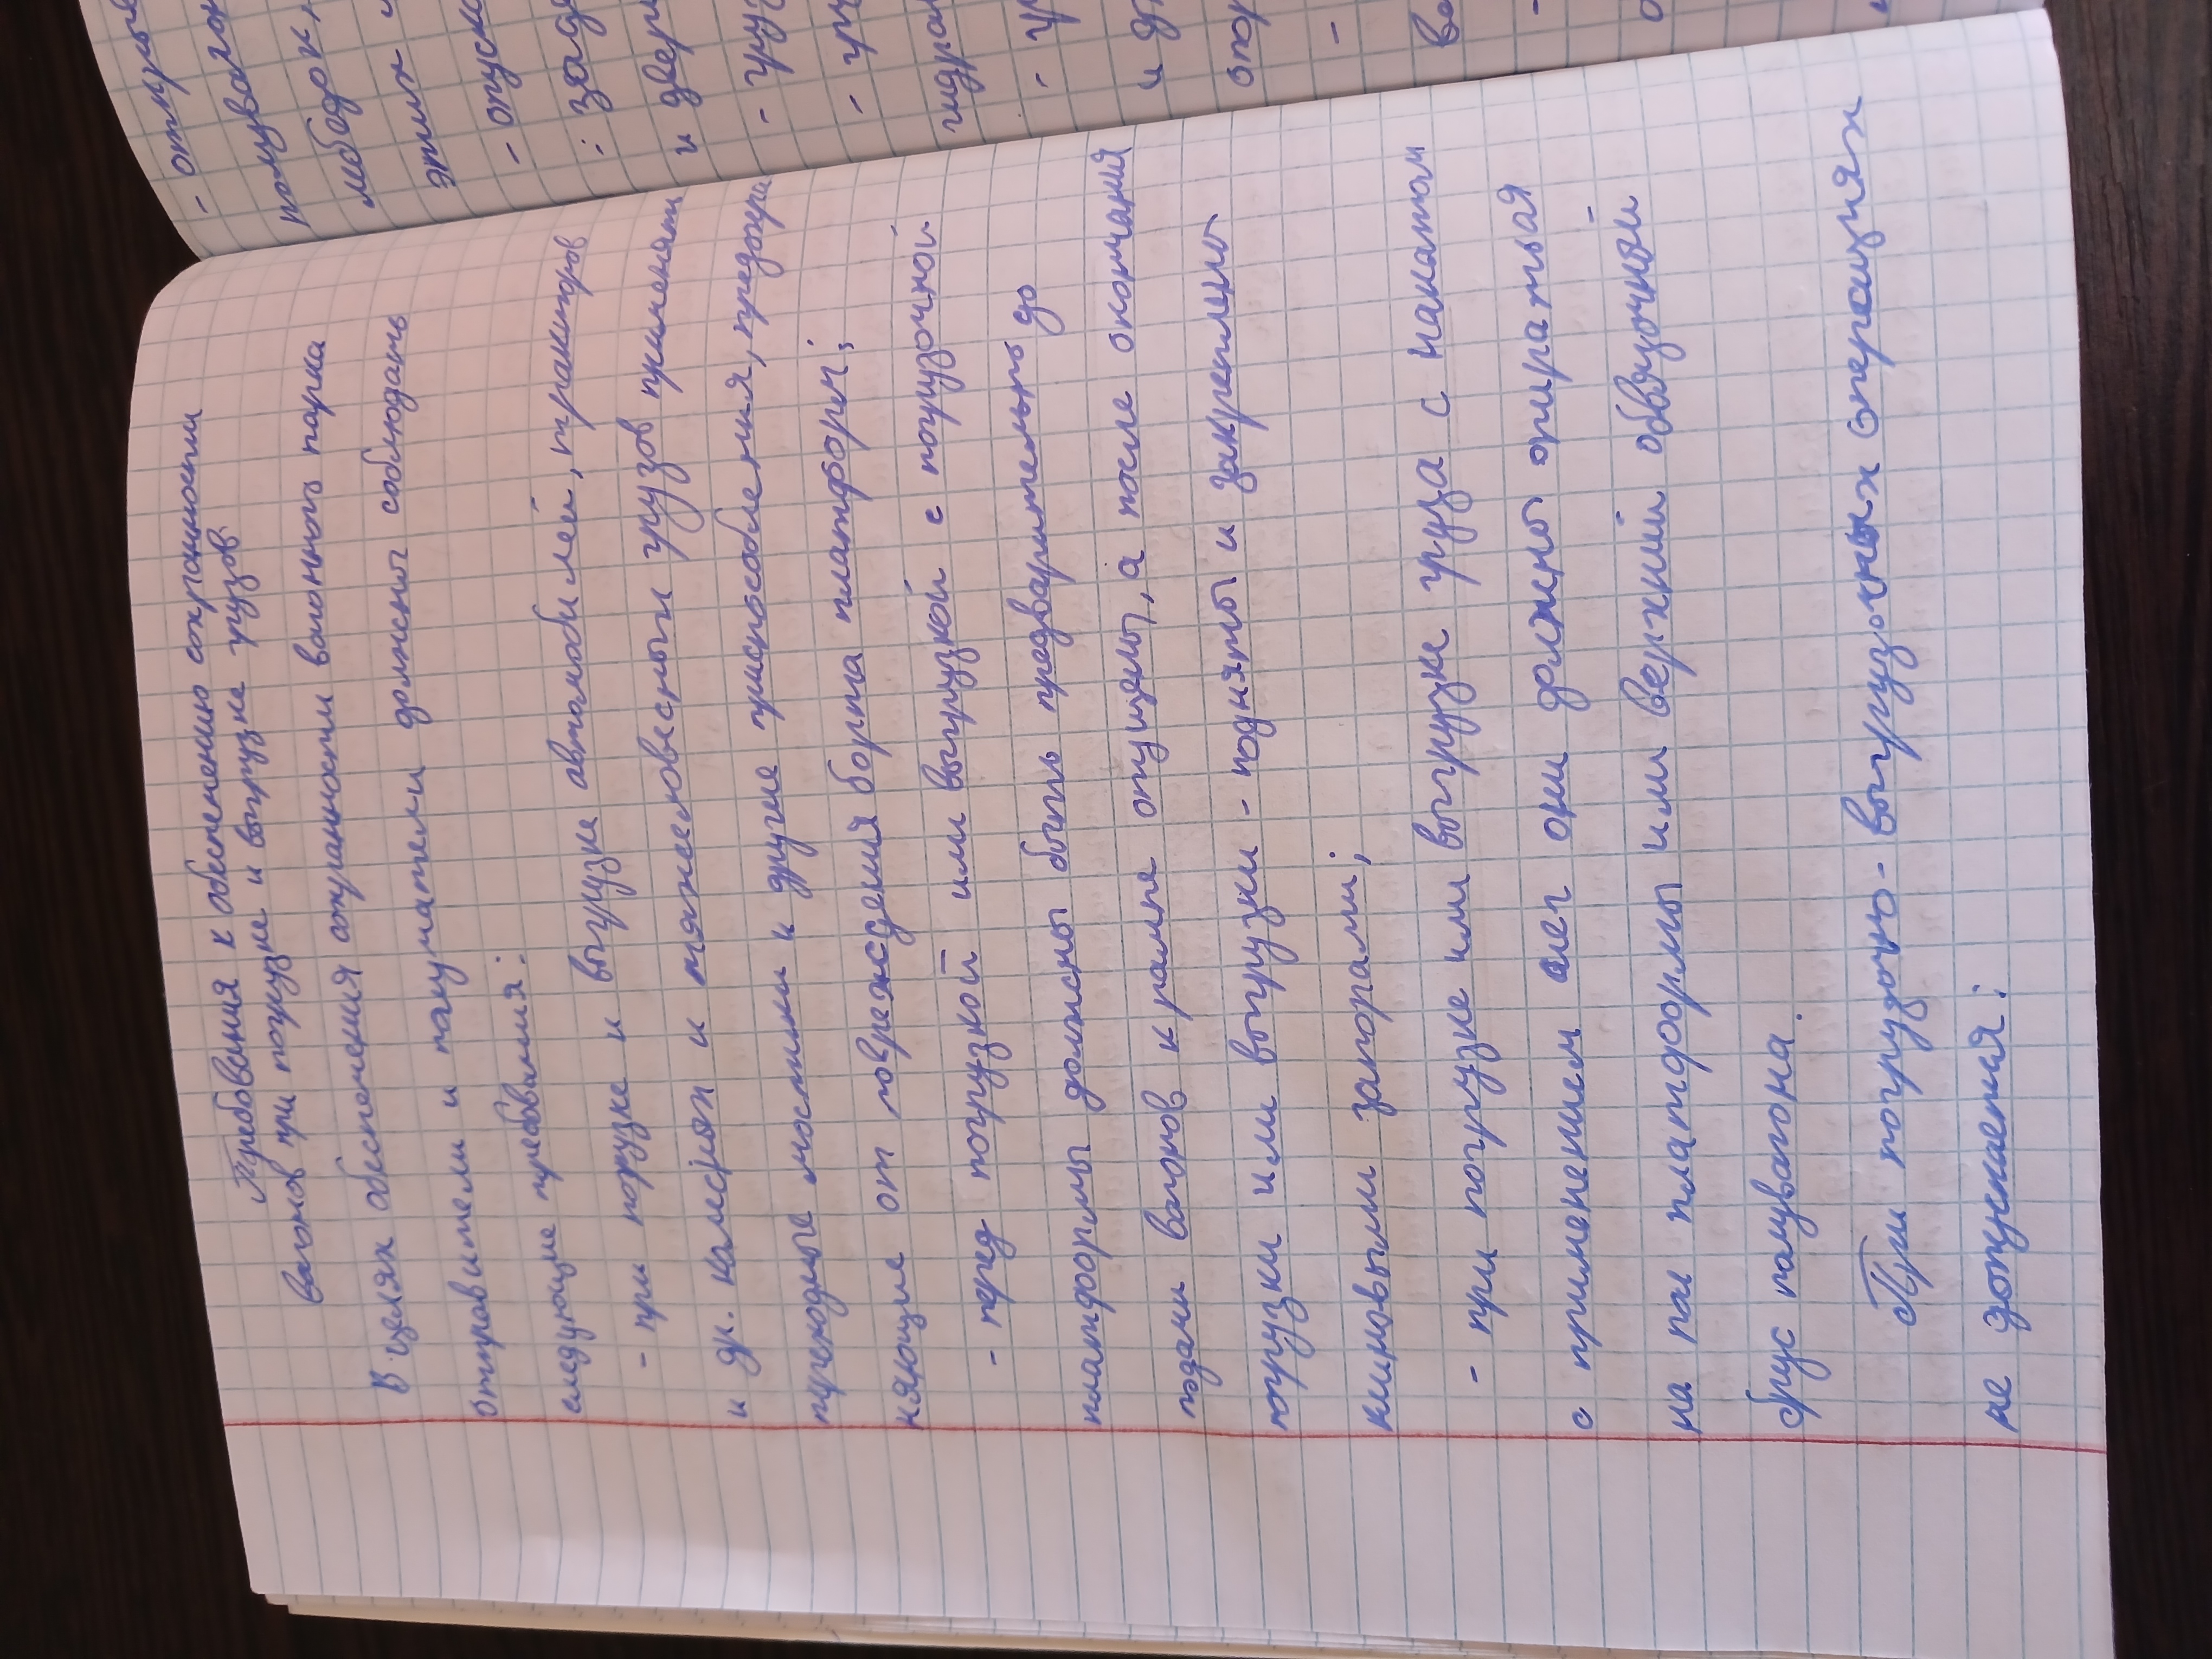 Требования к обеспечению сохранности
вагонов при погрузке и выгрузке грузов
В целях обеспечения сохранности вагонного парка
отправители и получатели должны соблюдать
следующие требования:
- при погрузке и выгрузке автомобилей, тракторов
и др. колесных и тяжеловесных грузов применять
переходные мостики и другие приспособления, предохра
няющие от повреждения борта платформ;
- перед погрузкой или выгрузкой с погрузочной
платформы должны быть предварительно до
подачи вагонов к рампе опущены, а после окончания
погрузки или выгрузки - подняты и закреплены
клиновыми запорами;
- при погрузке или выгрузке груза с накатом
с применением слег они должны опираться
на пол платформы или верхний обвязочный
брус полувагона.
При погрузочно-выгрузочных операциях
не допускается:
- отпра
полуваго
лебедок,
этих
- опуска
и двер
- груз
- гр
гидра
и д
опор
-